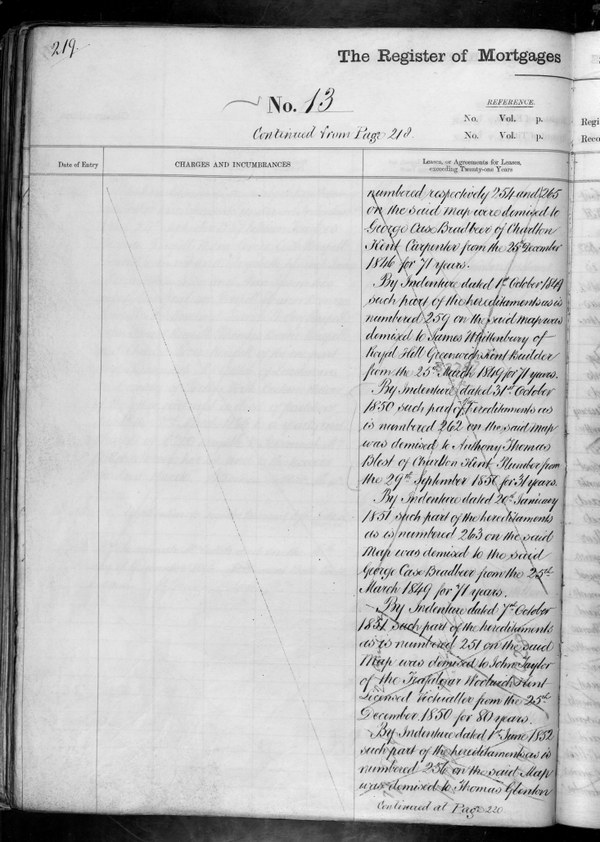 219.
The Register of Mortgages
No. 13
REFERENCE.
No. Vol. p.
Continued from Page 218
No. Vol. p.
Regi
Reco
Date of Entry
CHARGES AND INCUMBRANCES
Leases, or Agreements for Leases,
exceeding Twenty-one Years
numbered respectively 254 and 265
on the said map were demised to
George Case Bradbeer of Charlton
Kent Carpenter from the 25th December
1846 for 71 years.
By Indenture dated 1st October 1849
such part of the hereditaments as is
numbered 259 on the said map was
demised to James Whittenbury of
Royal Hill Greenwich Kent Builder
from the 25th March 1849 for 71 years.
By Indenture dated 31st October
1850 such part of hereditaments as
is numbered 262 on the said map
was demised to Anthony Thomas
Blest of Charlton Kent Plumber from
the 29th September 1850 for 31 years.
By Indenture dated 20th January
1851 such part of the hereditaments
as is numbered 263 on the said
Map was demised to the said
George Case Bradbeer from the 25th
March 1849 for 71 years.
By Indenture dated 7th October
1851 such part of the hereditaments
as is numbered 251 on the said
Map was demised to John Taylor
of the Trafalgar Woolwich Kent
Licensed Victualler from the 25th
December 1850 for 80 years.
By Indenture dated 1st June 1852
such part of the hereditaments as is
numbered 256 on the said Map
was demised to Thomas Glenton
Continued at Page 220